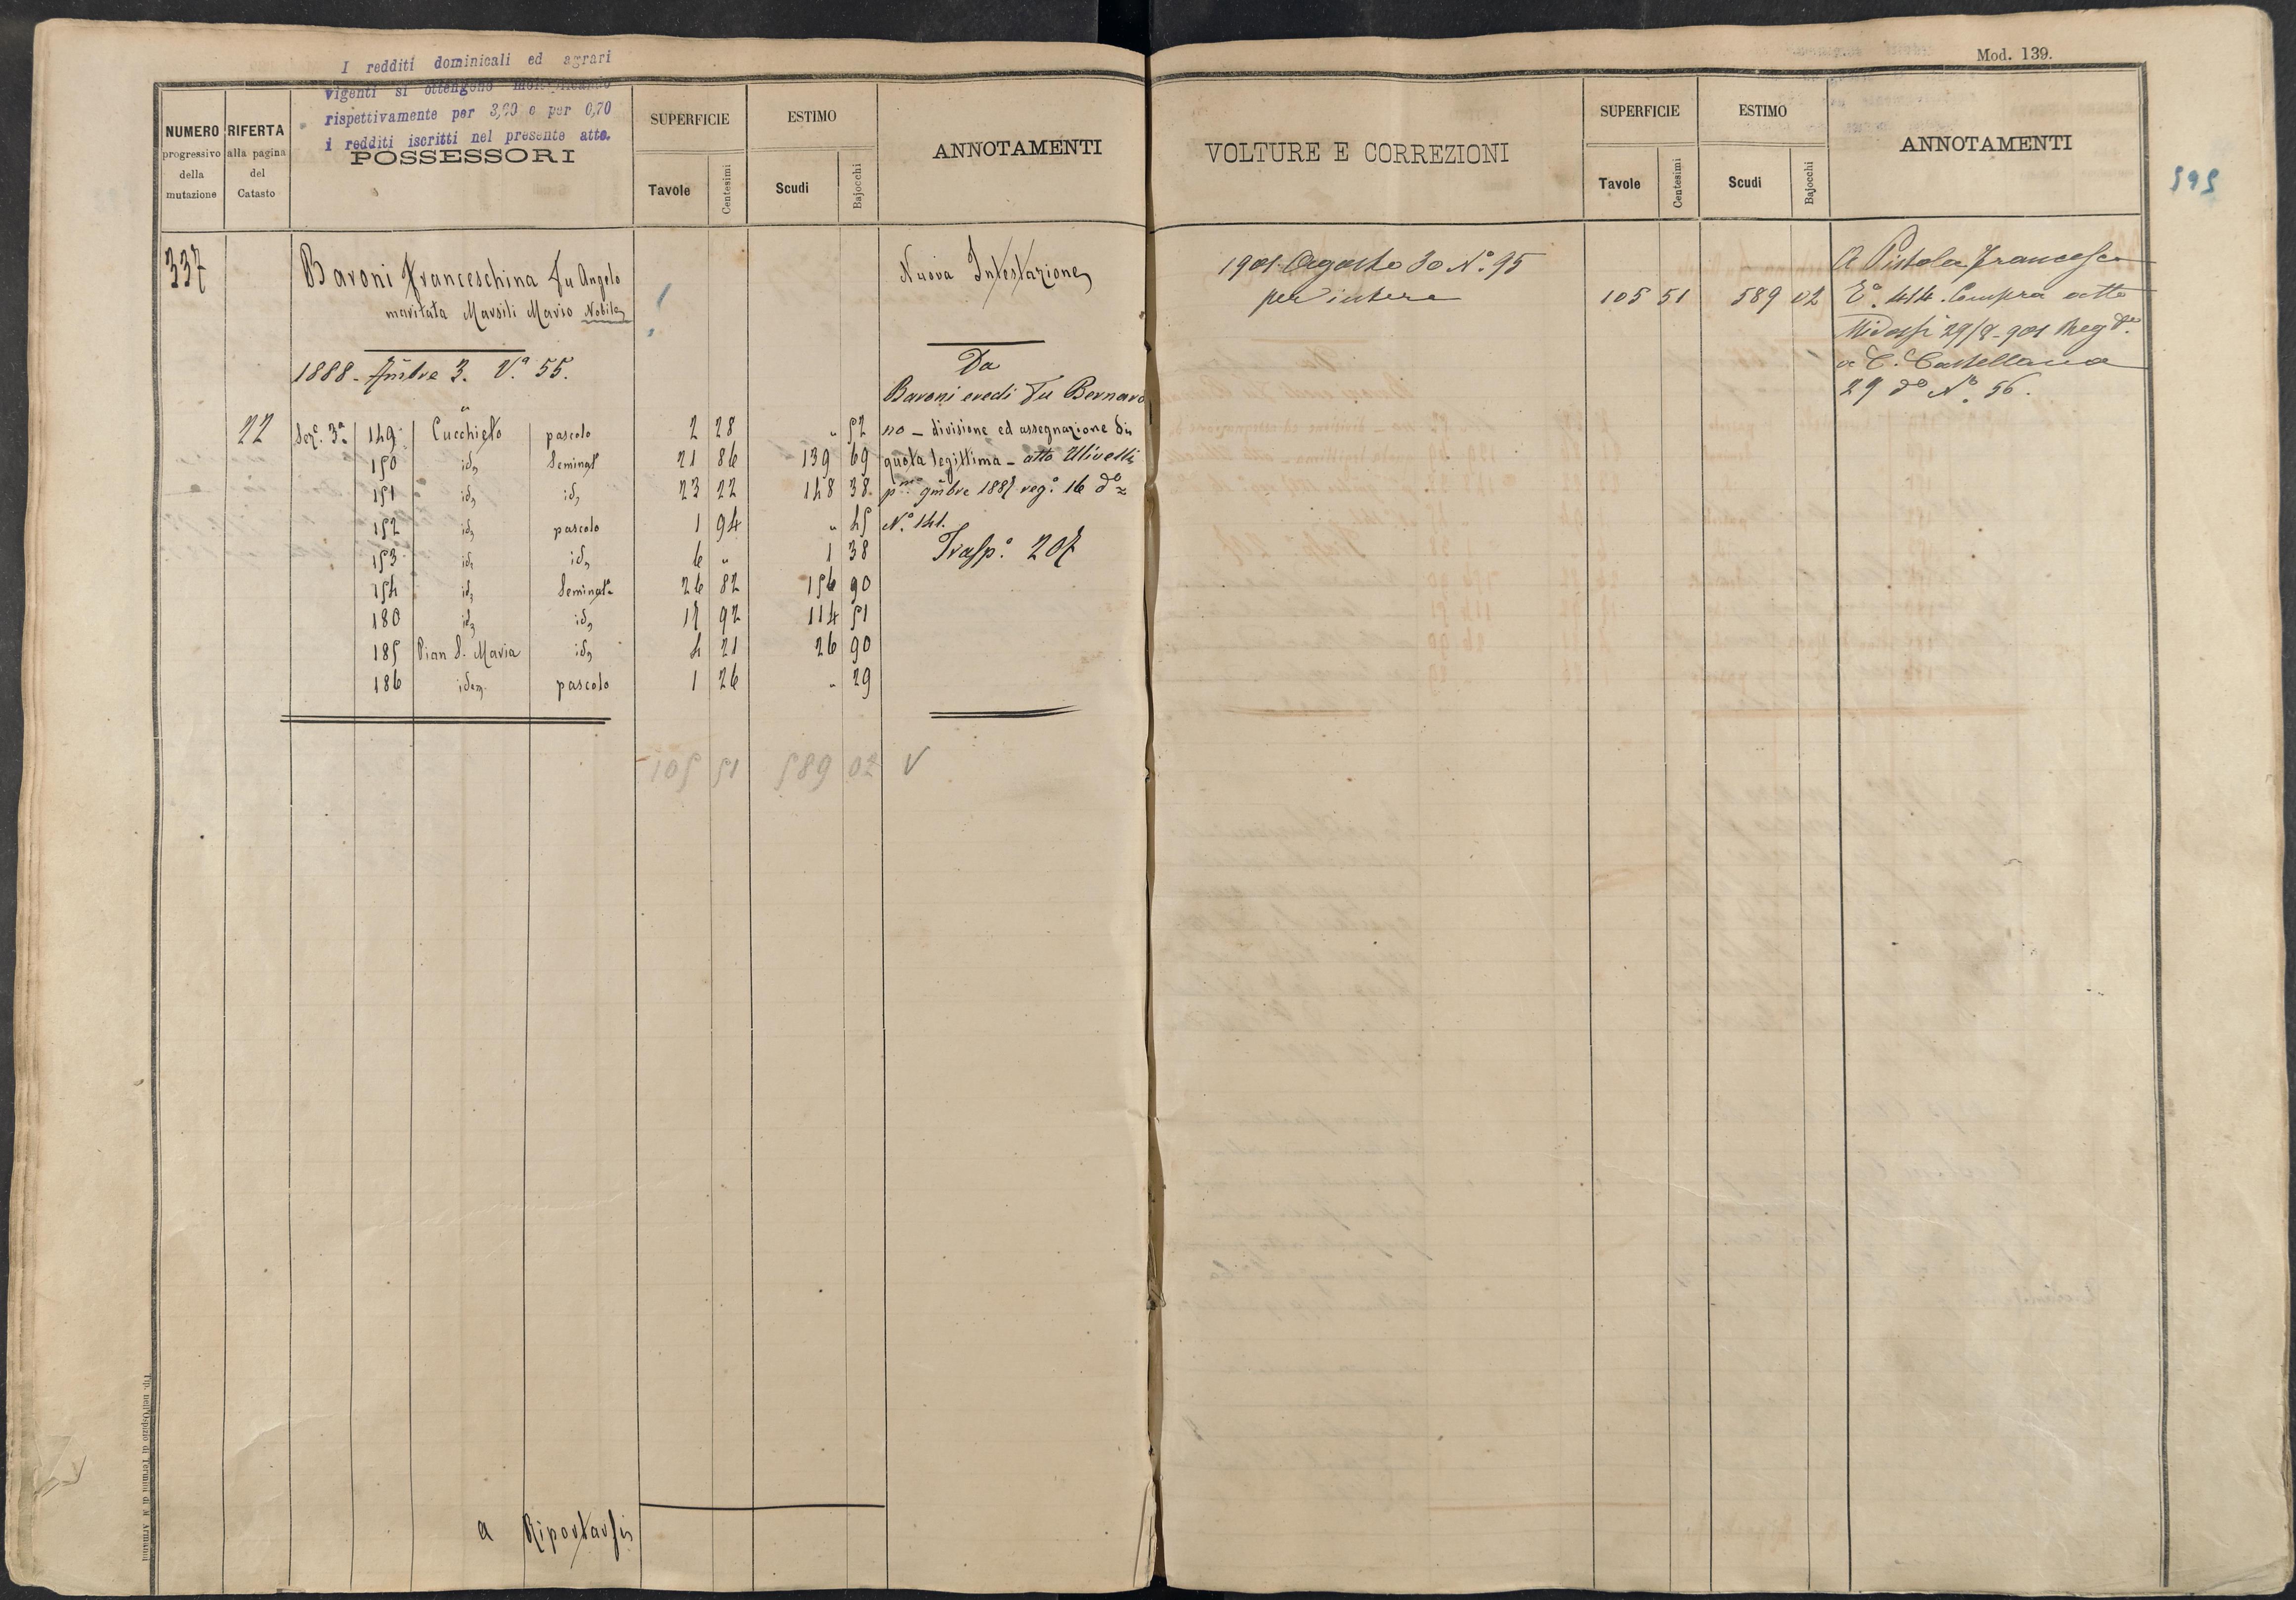 I redditi dominicali ed agrari
vigenti si ottengono moltiplicando
rispettivamente per 3,60 e per 0,70
i redditi iscritti nel presente atto.
NUMERO progressivo della mutazione
RIFERTA alla pagina del Catasto
POSSESSORI
SUPERFICIE
Tavole Centesimi
ESTIMO
Scudi Bajocchi
ANNOTAMENTI
337 Baroni Franceschina fu Angelo
maritata Marsili Mario Nobile
Nuova Intestazione
1888 3. V.ª 55.
Da
Baroni eredi fu Bernard
22 Sez.e 3.a 149 Cucchieto pascolo 2 28 " 52
no – divisione ed assegnazione di
150 id. Seminat.o 21 86 139 69
quota legittima – atto Ulivelli
151 id. id. 23 22 148 38
p.mo 9mbre 1887 reg.o 16 do
152 id. pascolo 1 94 " 45
N.o 141.
153 id. id. 6 " 1 38
Trasp.o 207
154 id. Seminat.o 26 82 156 90
180 id. id. 17 92 114 51
185 Pian S. Maria id. 4 21 26 90
186 idem pascolo 1 26 " 29
105 51 589 02 V
a Riportarsi
Tip. nell'Ospizio di Termini di M. Armanni
Mod. 139.
VOLTURE E CORREZIONI
SUPERFICIE
Tavole Centesimi
ESTIMO
Scudi Bajocchi
ANNOTAMENTI
595
1901 Agosto 30 N.o 95
per intero 105 51 589 02
A Pistola Francesco
414. Compra atto
Midossi 29/8-901 Reg.
a C. Castellana
29 do N.o 56.